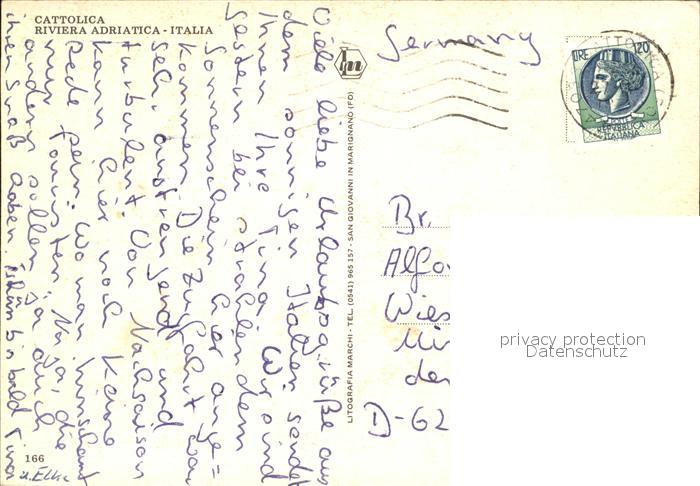 CATTOLICA
RIVIERA ADRIATICA - ITALIA
Viele liebe Urlaubsgrüße aus
dem sonnigen Italien sendet
Ihnen Ihre Tina. Wir sind
gestern bei strahlendem
Sonnenschein hier ange=
kommen. Die Zufahrt war
sehr anstrengend und
turbulent. Von Nachsaison
kann hier noch keine
Rede sein. Wo man hinschaut
nur Touristen. Na ja, die
anderen sollen ja auch
ihren Spaß haben. Tschüß bis bald Tina
u. Elke
166
LITOGRAFIA MARCHI - TEL. (0541) 965 157 - SAN GIOVANNI IN MARIGNANO (FO)
Germany
LIRE 120
REPVBBLICA
ITALIANA
Br.
Alfo
Wies
Mi
de
D-62
privacy protection
Datenschutz